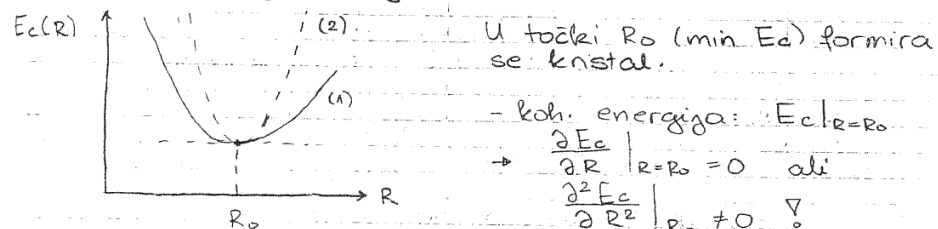 Ec(R)
(2).
(1)
R
Ro
U točki Ro (min Ec) formira
se kristal.
- koh. energija: Ec|R=Ro
→ ∂Ec/∂R |R=Ro = 0 ali
∂²Ec/∂R² |Ro ≠ 0 !